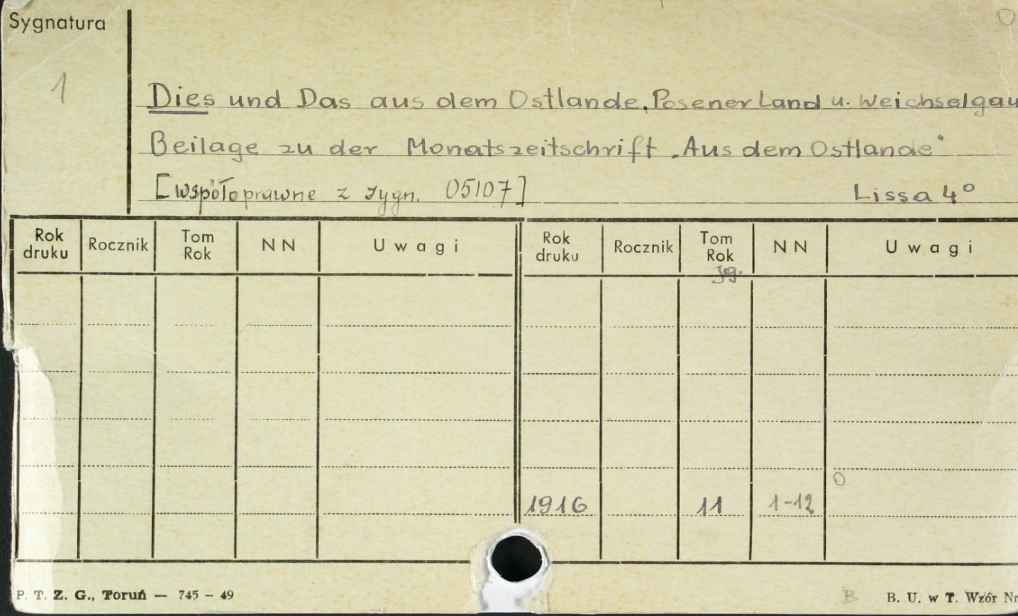 Sygnatura
1
Dies und Das aus dem Ostlande, Posener Land u. Weichselgau
Beilage zu der Monatszeitschrift „Aus dem Ostlande"
[współoprawne z sygn. 05107]
Lissa 4°
Rok druku Rocznik Tom Rok NN Uwagi Rok druku Rocznik Tom Rok NN Uwagi
Jg.
0
1916 11 1-12
P. T. Z. G., Toruń — 745 – 49
B B. U. w T. Wzór Nr